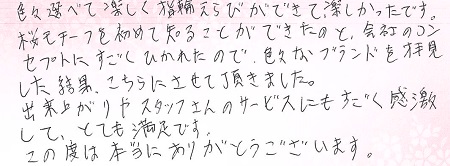 色々選べて楽しく指輪えらびができて、楽しかったです。
桜モチーフを初めて知ることができたのと、会社のコン
セプトにすごくひかれたので、色々なブランドを拝見
した結果、こちらにさせて頂きました。
出来上がりやスタッフさんのサービスにもすごく感激
して、とても満足です。
この度は本当にありがとうございます。